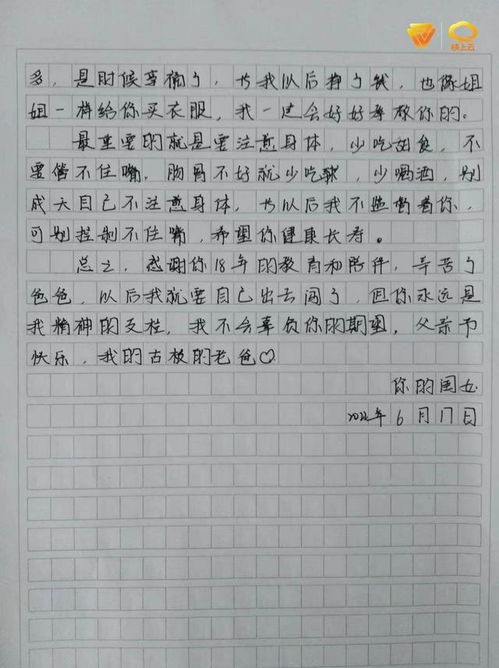 榜上云
多，是时候享福了，书我以后挣了钱，也像姐
姐一样给你买衣服，我一定会好好孝敬你的。
最重要的就是要注意身体，少吃甜食，不
要管不住嘴，肠胃不好就少吃辣，少喝酒，别
成天自己不注意身体，书以后我不监督着你，
可别控制不住嘴，希望你健康长寿。
总之，感谢你18年的教育和陪伴，辛苦了
爸爸，以后我就要自己出去闯了，但你永远是
我精神的支柱，我不会辜负你的期望，父亲节
快乐，我的古板的老爸♡
你的闺女
2022年6月17日